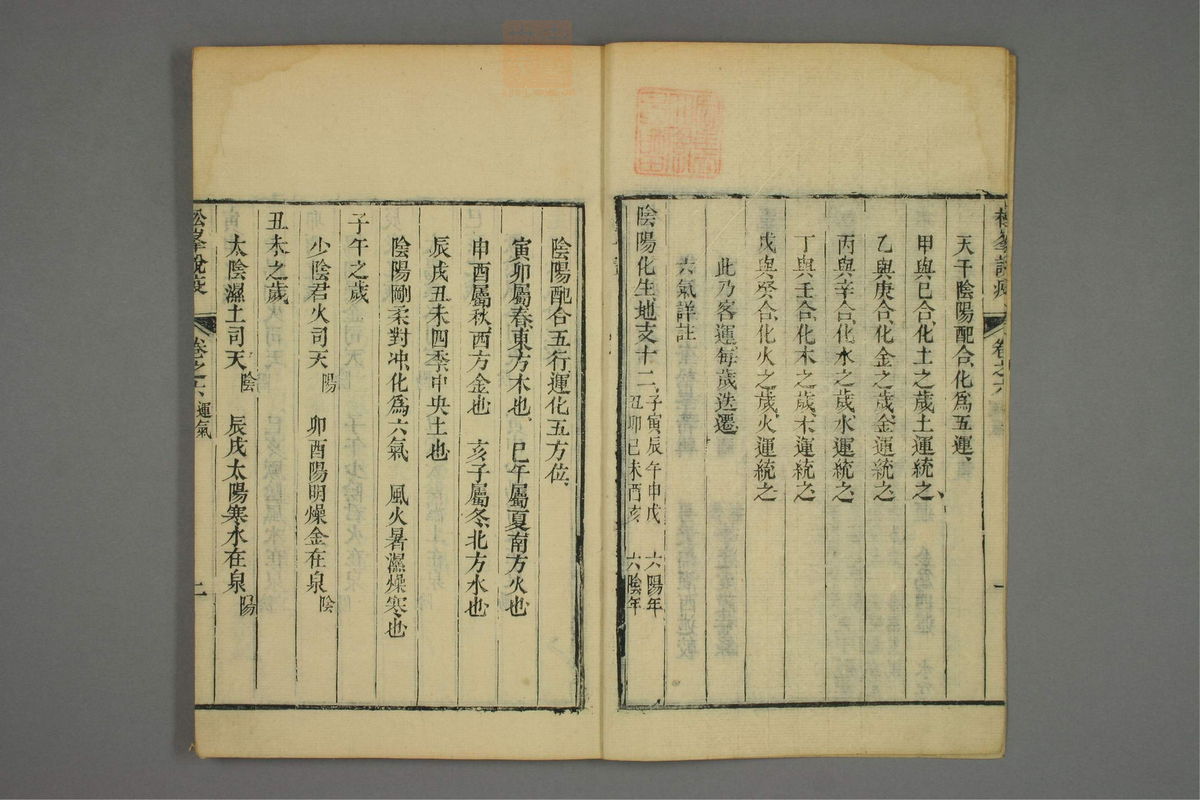 天干陰陽配合化爲五運、
甲與己合、化土之歲、土運統之、
乙與庚合、化金之歲、金運統之、
丙與辛合、化水之歲、水運統之、
丁與壬合、化木之歲、木運統之、
戊與癸合、化火之歲、火運統之、
此乃客運、每歲迭遷、
六氣詳註
陰陽化生地支十二、子寅辰午申戌 六陽年
丑卯巳未酉亥 六陰年
陰陽配合五行運化五方位、
寅卯屬春、東方木也、 巳午屬夏、南方火也
申酉屬秋、西方金也 亥子屬冬、北方水也
辰戌丑未四季、中央土也
陰陽剛柔對冲、化爲六氣 風火暑濕燥寒也
子午之歲
少陰君火司天 陽 卯酉陽明燥金在泉 陰
丑未之歲
太陰濕土司天 陰 辰戌太陽寒水在泉 陽
松峯說疫 卷之六 運氣 二